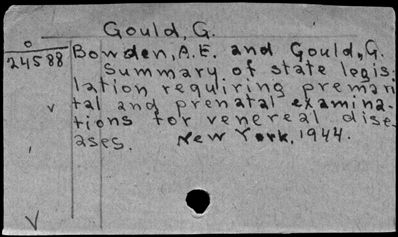 Gould, G.
o
24588
Bowden, A.E. and Gould, G.
Summary of state legis-
lation requiring premari-
tal and prenatal examina-
tions for venereal dise-
ases. New York, 1944.